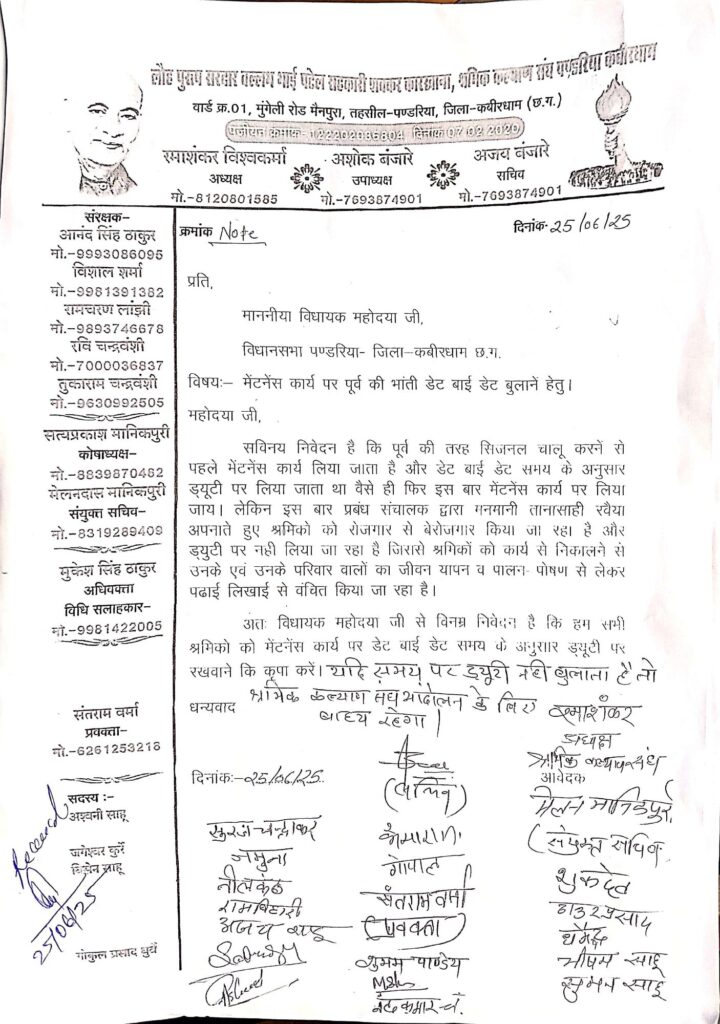 लौह पुरुष सरदार वल्लभ भाई पटेल सहकारी शक्कर कारखाना, श्रमिक कल्याण संघ पण्डरिया कबीरधाम
वार्ड क्र.01, मुंगेली रोड मैनपुरा, तहसील-पण्डरिया, जिला-कबीरधाम (छ.ग.)
पंजीयन क्रमांक- 122202086804 दिनांक 07 02 2020
रमाशंकर विश्वकर्मा
अध्यक्ष
मो.-8120801585
अशोक बंजारे
उपाध्यक्ष
मो.-7693874901
अजय बंजारे
सचिव
मो.-7693874901
संरक्षक-
आनंद सिंह ठाकुर
मो.-9993086095
विशाल शर्मा
मो.-9981391382
रामचरण लांझी
मो.-9893746678
रवि चन्द्रवंशी
मो.-7000036837
तुकाराम चन्द्रवंशी
मो.-9630992505
सत्यप्रकाश मानिकपुरी
कोषाध्यक्ष-
मो.-8839870482
मेलनदास मानिकपुरी
संयुक्त सचिव-
मो.-8319289409
मुकेश सिंह ठाकुर
अधिवक्ता
विधि सलाहकार-
मो.-9981422005
संतराम वर्मा
प्रवक्ता-
मो.-6261253218
सदस्य :-
अश्वनी साहू
जगेश्वर कुर्रे
साहू
गोकुल प्रसाद धुर्वे
Received
25/06/25
क्रमांक Note
दिनांक- 25/06/25
प्रति,
माननीया विधायक महोदया जी,
विधानसभा पण्डरिया- जिला-कबीरधाम छ.ग.
विषयः- मेंटनेंस कार्य पर पूर्व की भांती डेट बाई डेट बुलानें हेतु।
महोदया जी,
सविनय निवेदन है कि पूर्व की तरह सिजनल चालू करनें से
पहले मेंटनेंस कार्य लिया जाता है और डेट बाई डेट समय के अनुसार
ड्यूटी पर लिया जाता था वैसे ही फिर इस बार मेंटनेंस कार्य पर लिया
जाय। लेकिन इस बार प्रबंध संचालक द्वारा मनमानी तानासाही रवैया
अपनाते हुए श्रमिको को रोजगार से बेरोजगार किया जा रहा है और
ड्युटी पर नही लिया जा रहा है जिससे श्रमिकों को कार्य से निकालने से
उनके एवं उनके परिवार वालों का जीवन यापन व पालन- पोषण से लेकर
पढाई लिखाई से वंचित किया जा रहा है।
अतः विधायक महोदया जी से विनम्र निवेदन है कि हम सभी
श्रमिको को मेंटनेंस कार्य पर डेट बाई डेट समय के अनुसार ड्यूटी पर
रखवाने कि कृपा करें। यदि समय पर ड्यूटी नही बुलाता है तो
धन्यवाद श्रमिक कल्याण संघ आंदोलन के लिए
बाध्य रहेगा।
रमाशंकर
अध्यक्ष
श्रमिक कल्याण संघ
आवेदक
दिनांक:-25/06/25.
(सचिव)
मेलन मानिकपुरी
(संयुक्त सचिव
सुरज चन्द्राकर
जमुना
नीलकंठ
रामबिहारी
अजय साहू
गोपाल
संतराम वर्मा
(प्रवक्ता)
शुभम पाण्डेय
शुकदेव
भीषम साहू
सुमन साहू